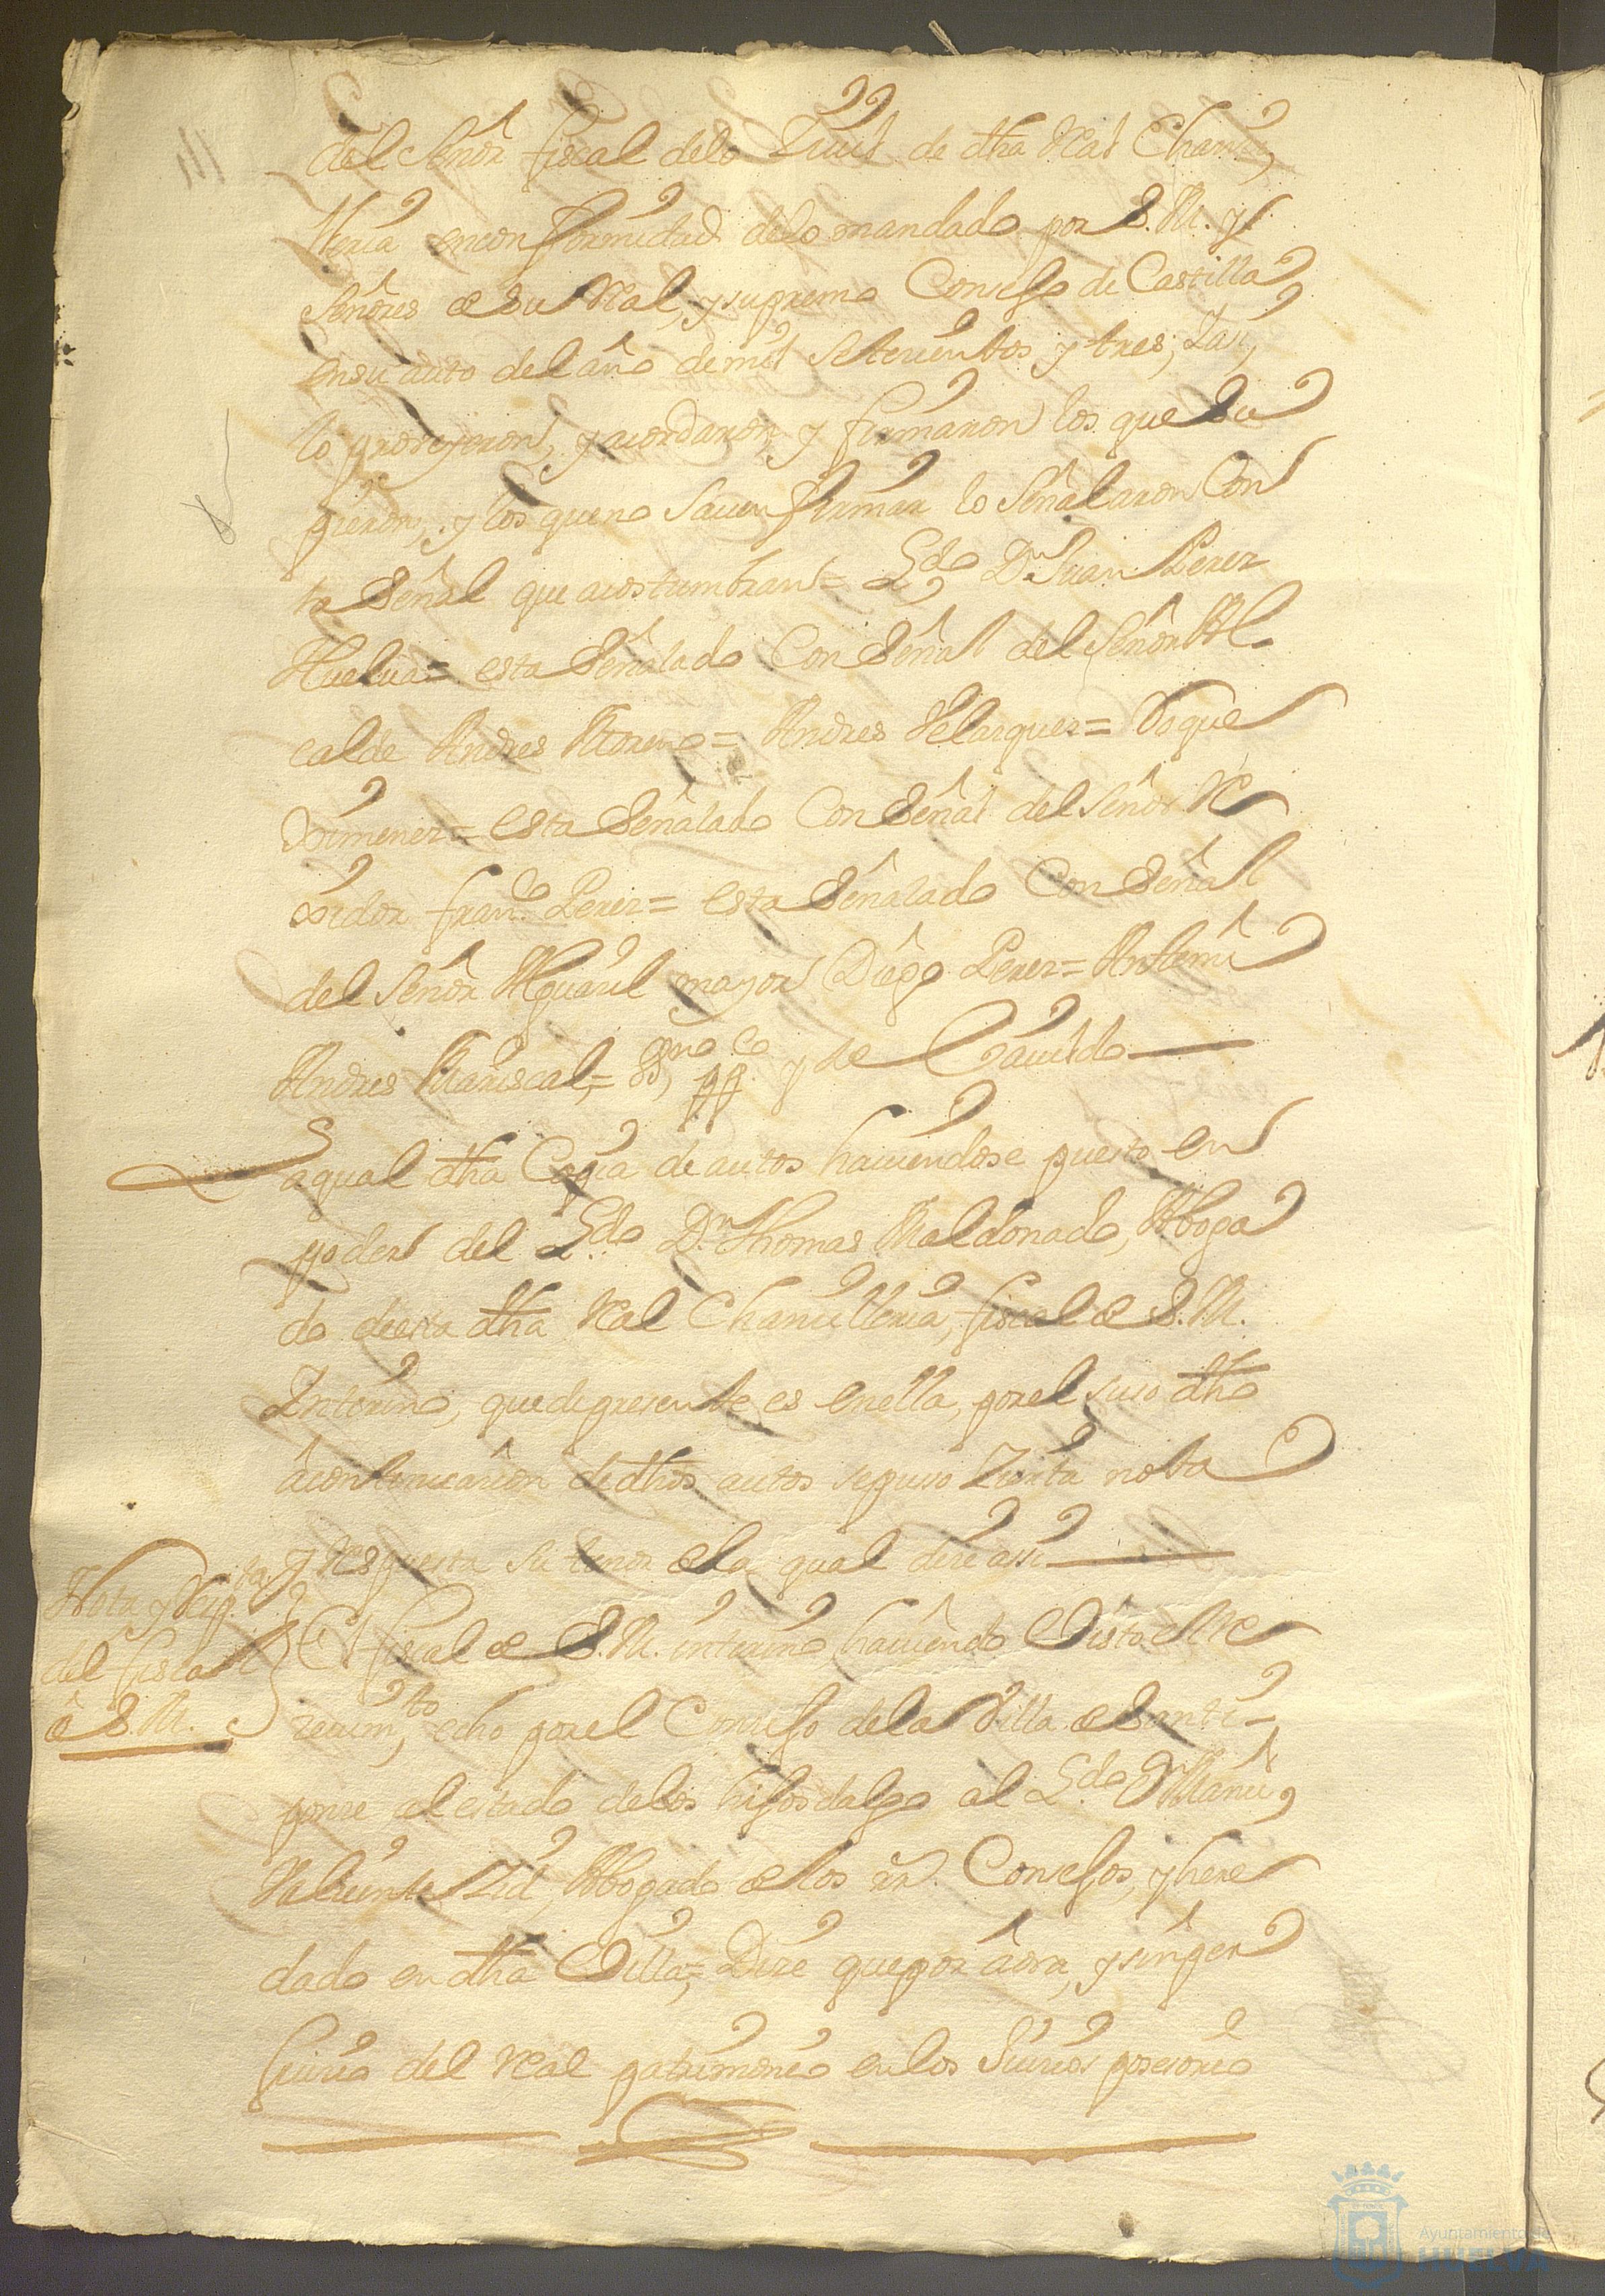 del Señor fiscal de lo Zivil de dha Real Chanzi,
lleria en conformidad de lo mandado por S. M. y
Señores de su Real, y supremo Consejo de Castilla,
en su auto del año de mil setecientos y tres, y assi,
lo proveyeron, y acordaron, y firmaron los que su
pieron, y los que no saven firmar lo señalaron Con
la Señal que acostumbran = Lzdo Dn Juan Perez
Huelva = esta Señalado Con Señal del Señor Al
calde Andres Moreno = Andres Velazquez = Roque
Ximenez = esta Señalado Con Señal del Señor Re
xidor Franco Perez = esta Señalado Con Señal
del Señor Alguazil mayor Diego Perez = Antemi
Andres Mariscal, = ssno ppco y de Cavildo
La qual dha Copia de autos haviendose puesto en
poder del Lzdo Dn Thomas Maldonado, Aboga
do de esta dha Real Chanzilleria, fiscal de S. M.
Interino, que de presente es en ella, por el suso dho
â continuazion de dhos autos se puso Zierta nota
y respuesta su tenor de la qual dize assi
Nota y Respta
del fiscal
de S. M.
El fiscal de S. M. interino haviendo visto el Re
zivimto, echo por el Consejo de la Villa de Santi,
ponze al estado de los hijosdalgo al Lzdo Dn Manl,
Valiente Zid, Abogado de los Rs. Consejos, y here
dado en dha Villa, = Dize que por aôra, y sin per
juizio del Real patrimonio en los Juizios posesorio
Ayuntamiento de
HUELVA